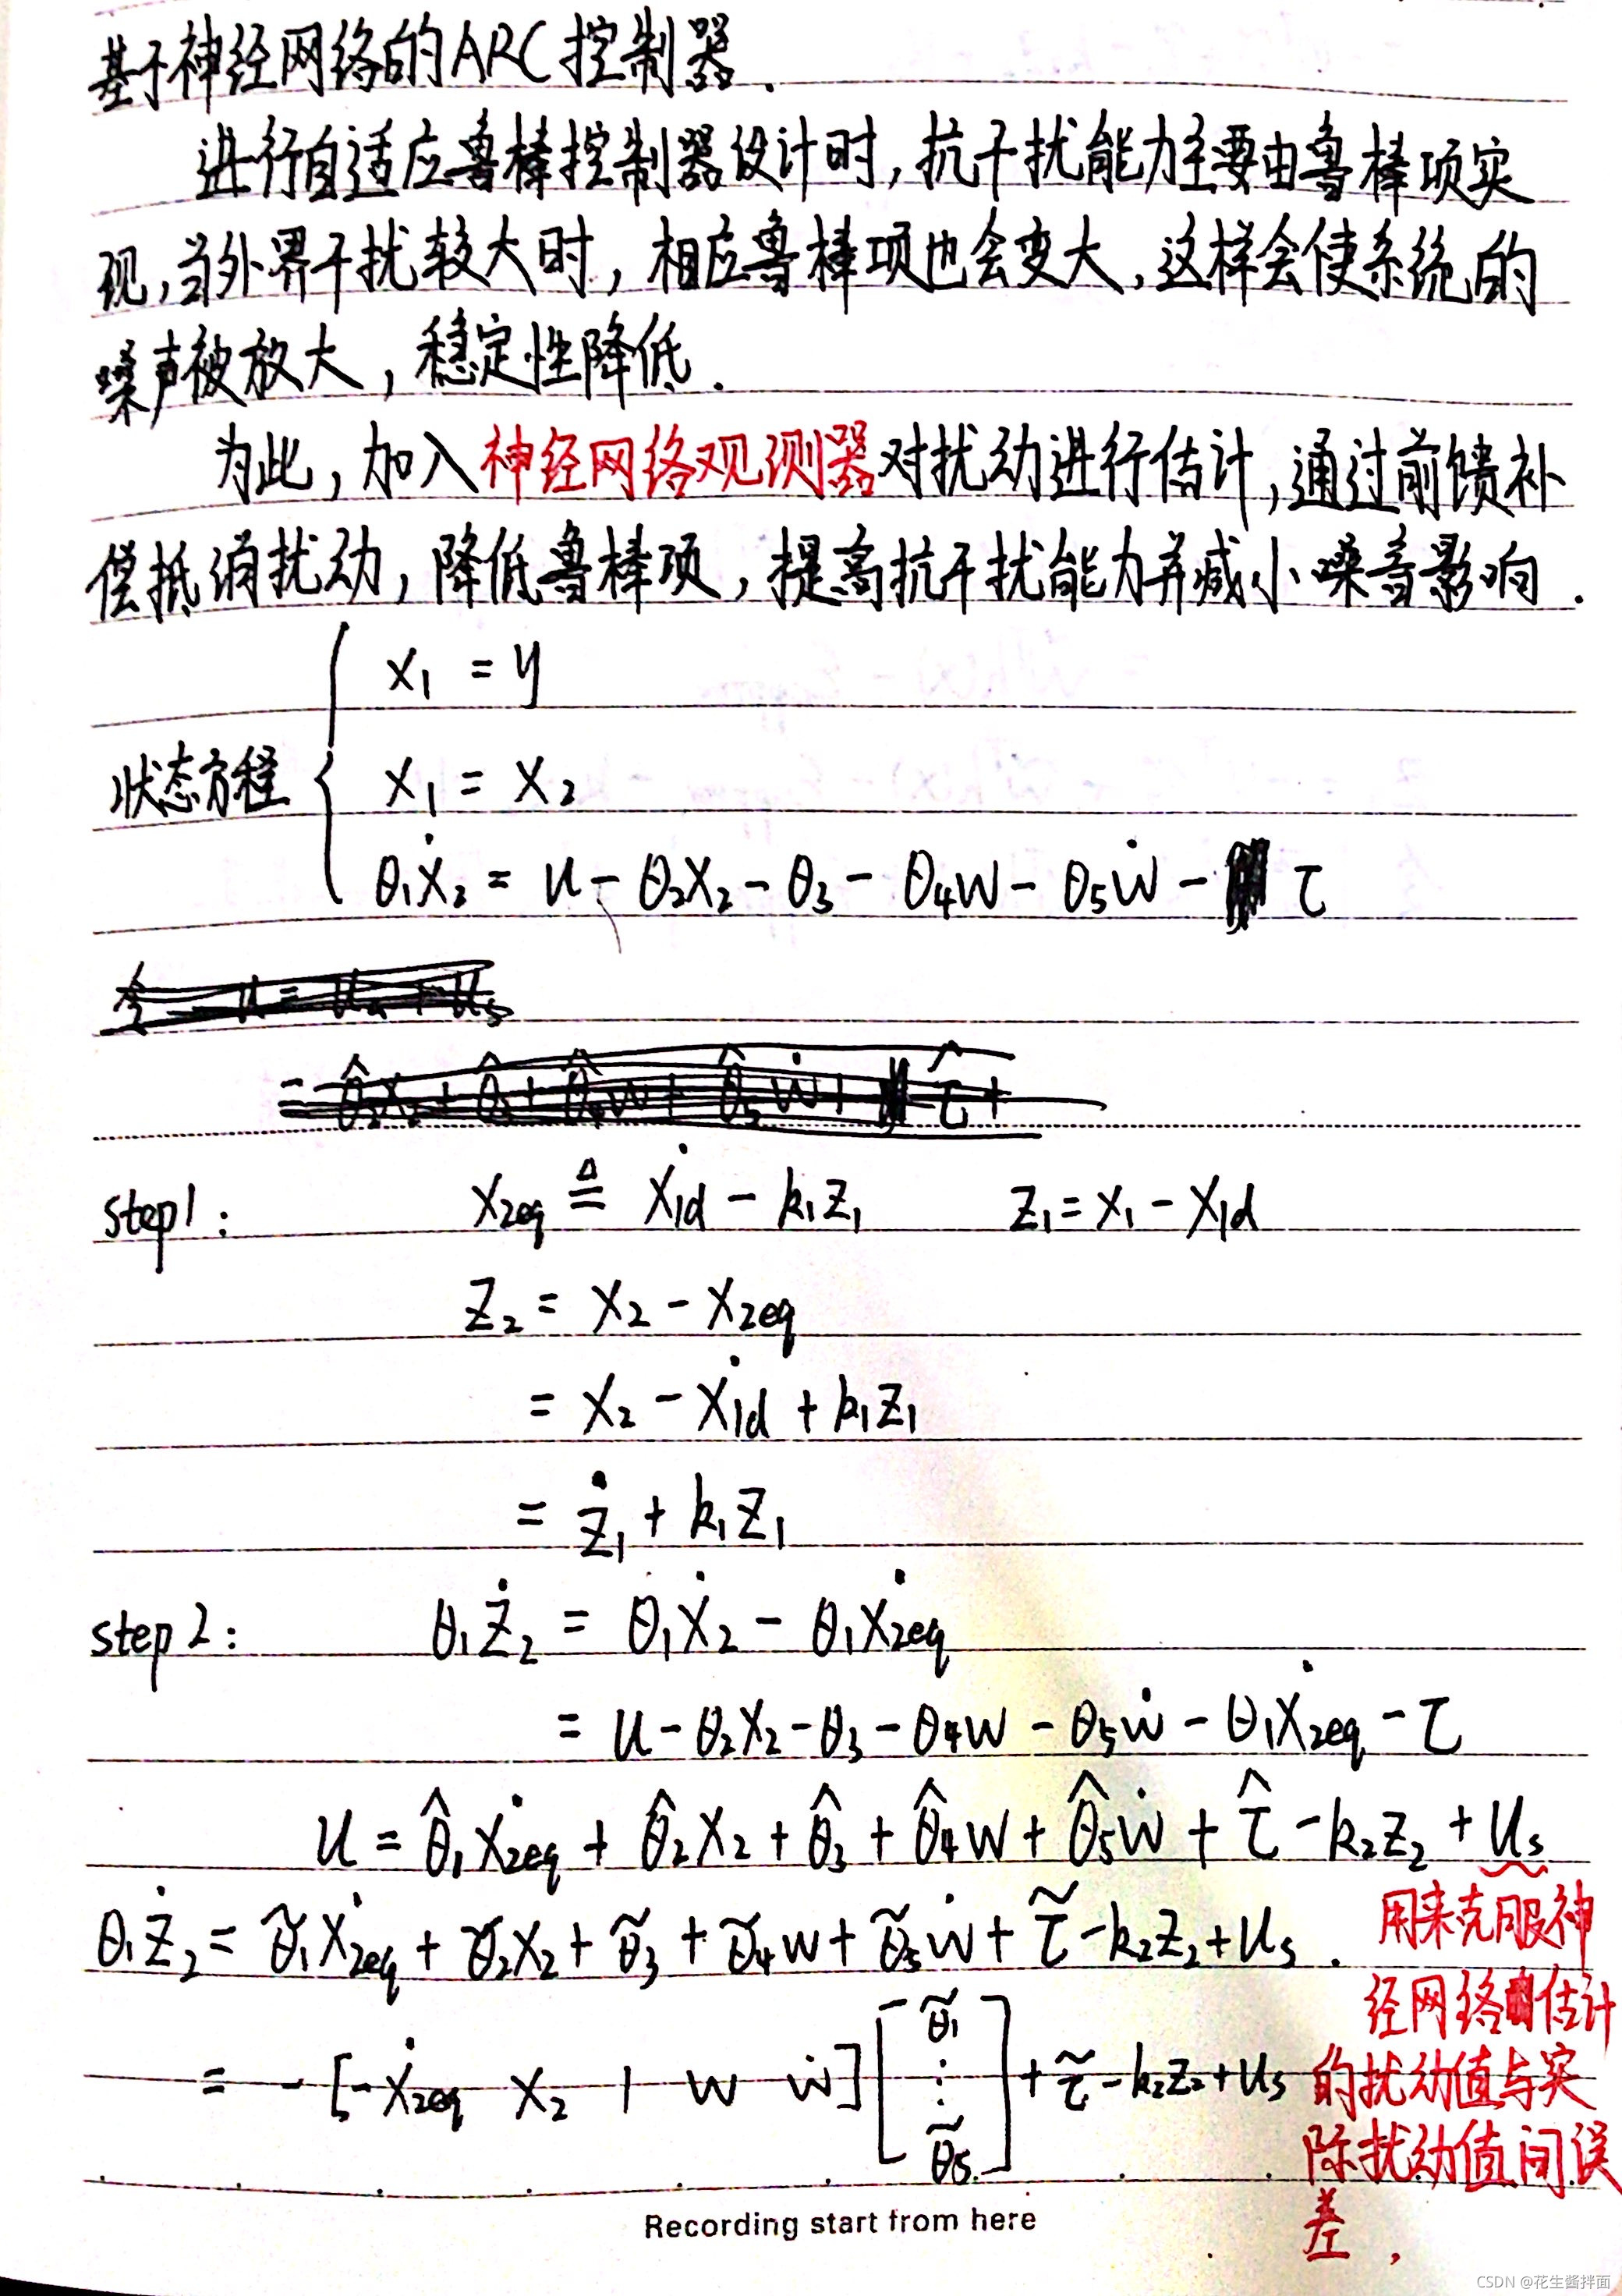 基于神经网络的ARC控制器.
进行自适应鲁棒控制器设计时,抗干扰能力主要由鲁棒项实
现,当外界干扰较大时,相应鲁棒项也会变大,这样会使系统的
噪声被放大,稳定性降低.
为此,加入神经网络观测器对扰动进行估计,通过前馈补
偿抵消扰动,降低鲁棒项,提高抗干扰能力并减小噪音影响.
x₁ = y
状态方程 { x₁ = x₂
θ₁ẋ₂ = u - θ₂x₂ - θ₃ - θ₄w - θ₅ẇ - τ
令 u = uₐ + uₛ
= θ̂₂x₂ + θ̂₃ + θ̂₄w + θ̂₅ẇ + τ̂ +
step1: x₂eq ≜ ẋ₁d - k₁z₁ z₁ = x₁ - x₁d
z₂ = x₂ - x₂eq
= x₂ - ẋ₁d + k₁z₁
= ż₁ + k₁z₁
step2: θ₁ż₂ = θ₁ẋ₂ - θ₁ẋ₂eq
= u - θ₂x₂ - θ₃ - θ₄w - θ₅ẇ - θ₁ẋ₂eq - τ
u = θ̂₁ẋ₂eq + θ̂₂x₂ + θ̂₃ + θ̂₄w + θ̂₅ẇ + τ̂ - k₂z₂ + uₛ
θ₁ż₂ = θ̃₁ẋ₂eq + θ̃₂x₂ + θ̃₃ + θ̃₄w + θ̃₅ẇ + τ̃ - k₂z₂ + uₛ.
= - [-ẋ₂eq x₂ 1 w ẇ] [θ̃₁ ⋮ θ̃₅] + τ̃ - k₂z₂ + uₛ
用来克服神
经网络估计
的扰动值与实
际扰动值间误
差,
Recording start from here
CSDN @花生酱拌面